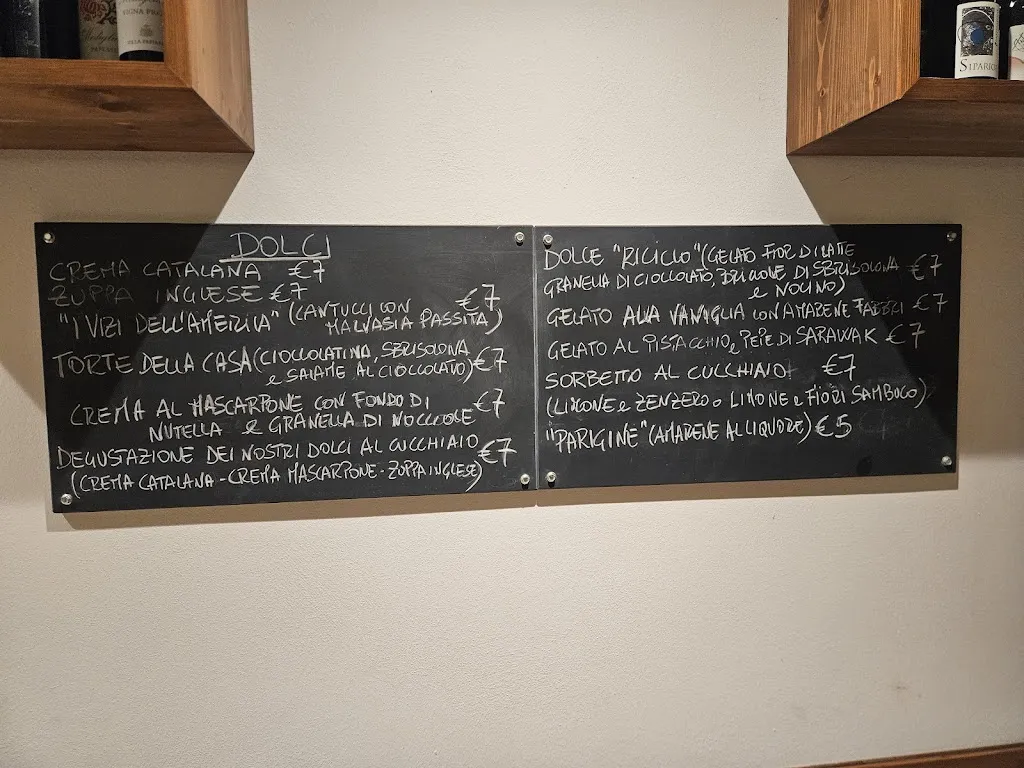 DOLCI
CREMA CATALANA €7
ZUPPA INGLESE €7
"I VIZI DELL'AMERIA" (CANTUCCI CON
MALVASIA PASSITA) €7
TORTE DELLA CASA (CIOCCOLATINA, SBRISOLONA
e SALAME AL CIOCCOLATO) €7
CREMA AL MASCARPONE CON FONDO DI
NUTELLA e GRANELLA DI NOCCIOLE €7
DEGUSTAZIONE DEI NOSTRI DOLCI AL CUCCHIAIO €7
(CREMA CATALANA - CREMA MASCARPONE - ZUPPA INGLESE)
DOLCE "RICICLO" (GELATO FIOR DI LATTE
GRANELLA DI CIOCCOLATO, BRICIOLE DI SBRISOLONA €7
e NOCINO)
GELATO ALLA VANIGLIA CON AMARENE FABBRI €7
GELATO AL PISTACCHIO e PEPE DI SARAWAK €7
SORBETTO AL CUCCHIAIO €7
(LIMONE e ZENZERO o LIMONE e FIORI SAMBUCO)
"PARIGINE" (AMARENE AL LIQUORE) €5
VIGNA PRA
SIPARIO